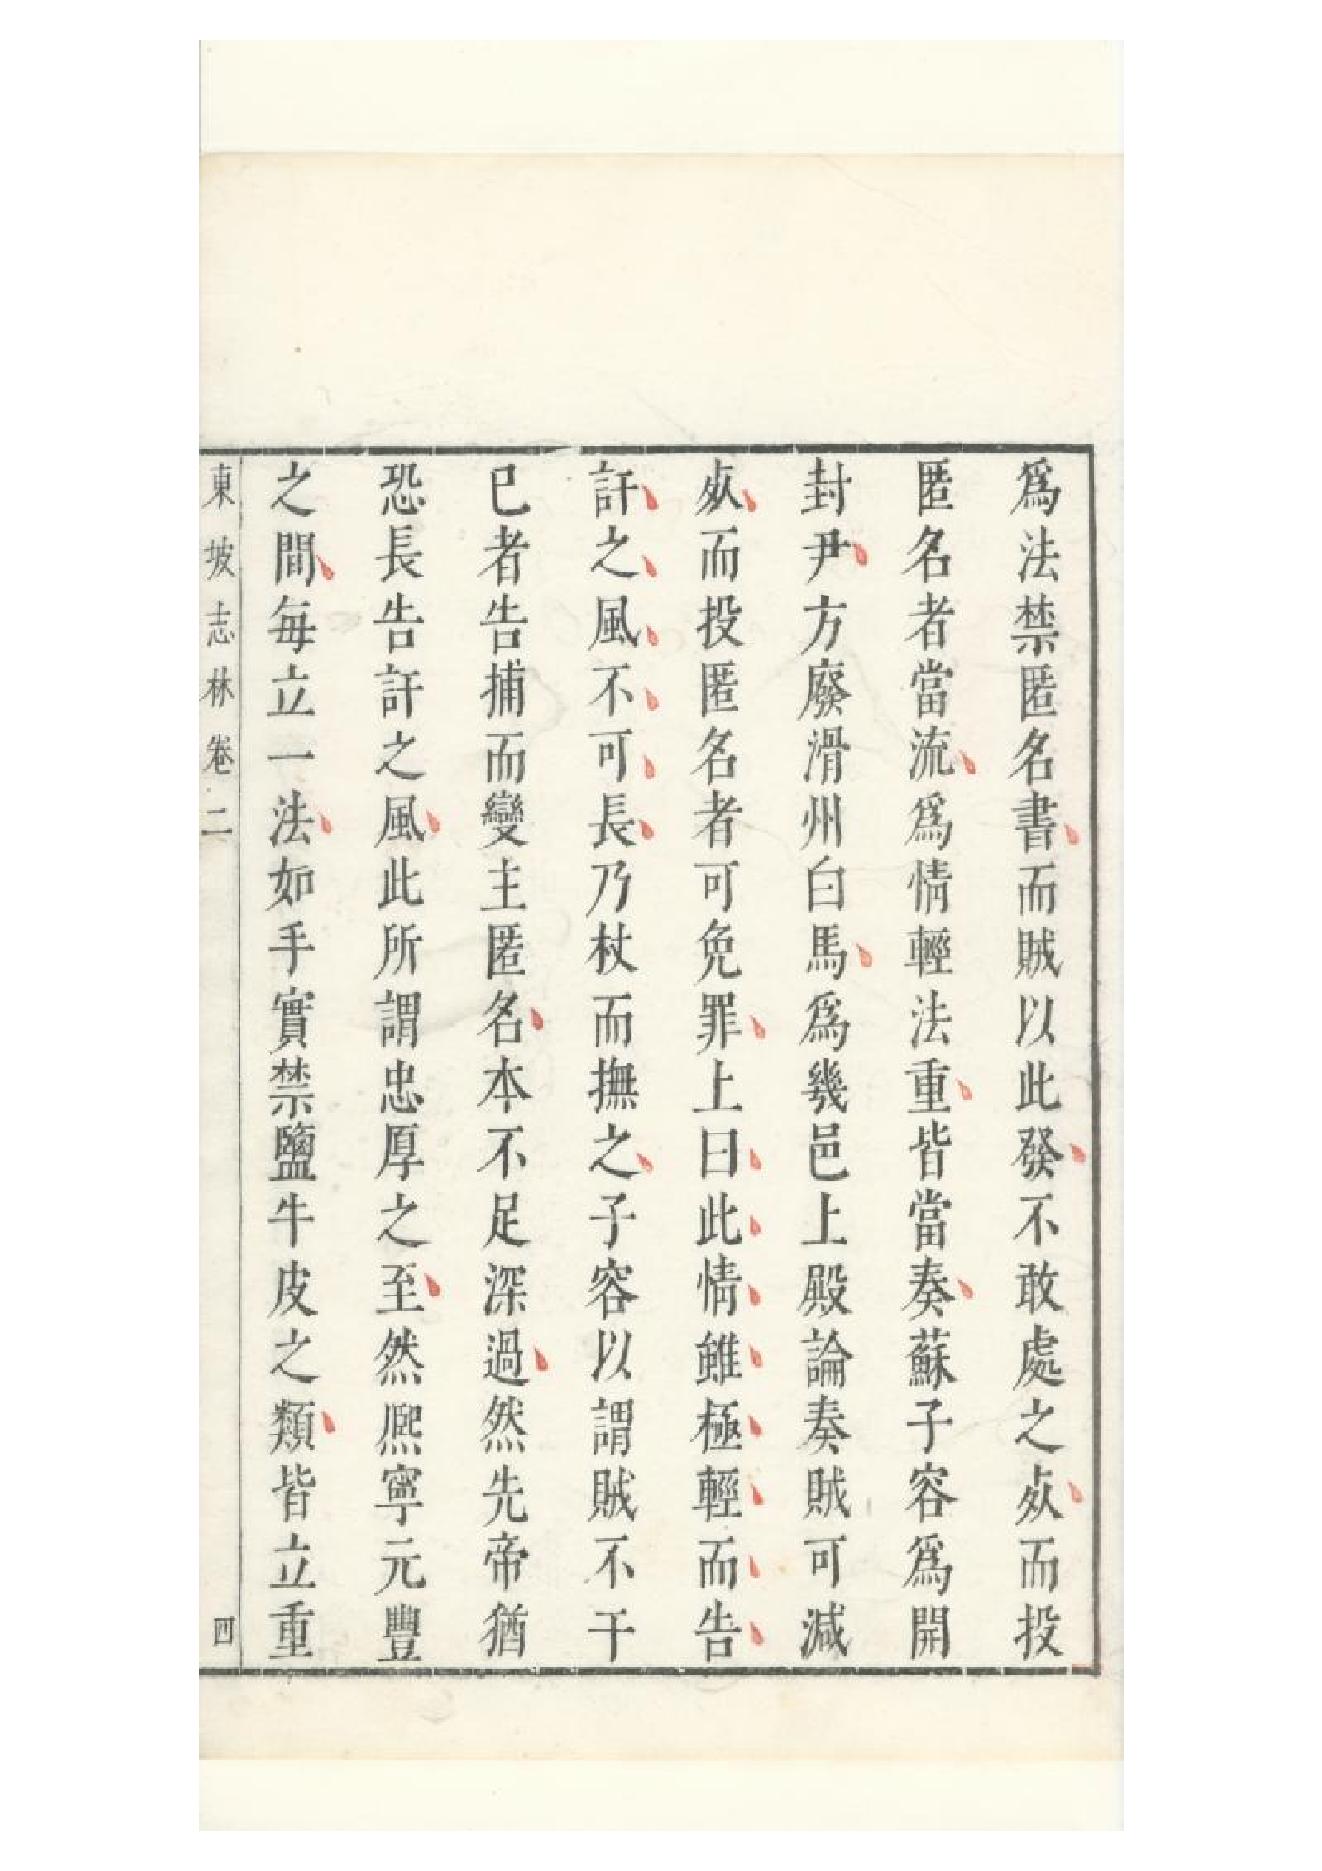 爲法禁匿名書而賊以此發不敢處之㱕而投
匿名者當流爲情輕法重皆當奏蘇子容爲開
封尹方廢滑州白馬爲畿邑上殿論奏賊可減
而投匿名者可免罪上曰此情雖極輕而告
訐之風不可長乃杖而撫之子容以謂賊不干
已者告捕而變主匿名本不足深過然先帝猶
恐長告訐之風此所謂忠厚之至然熈寧元豐
之間每立一法如手實禁鹽牛皮之類皆立重
東坡志林卷二
四